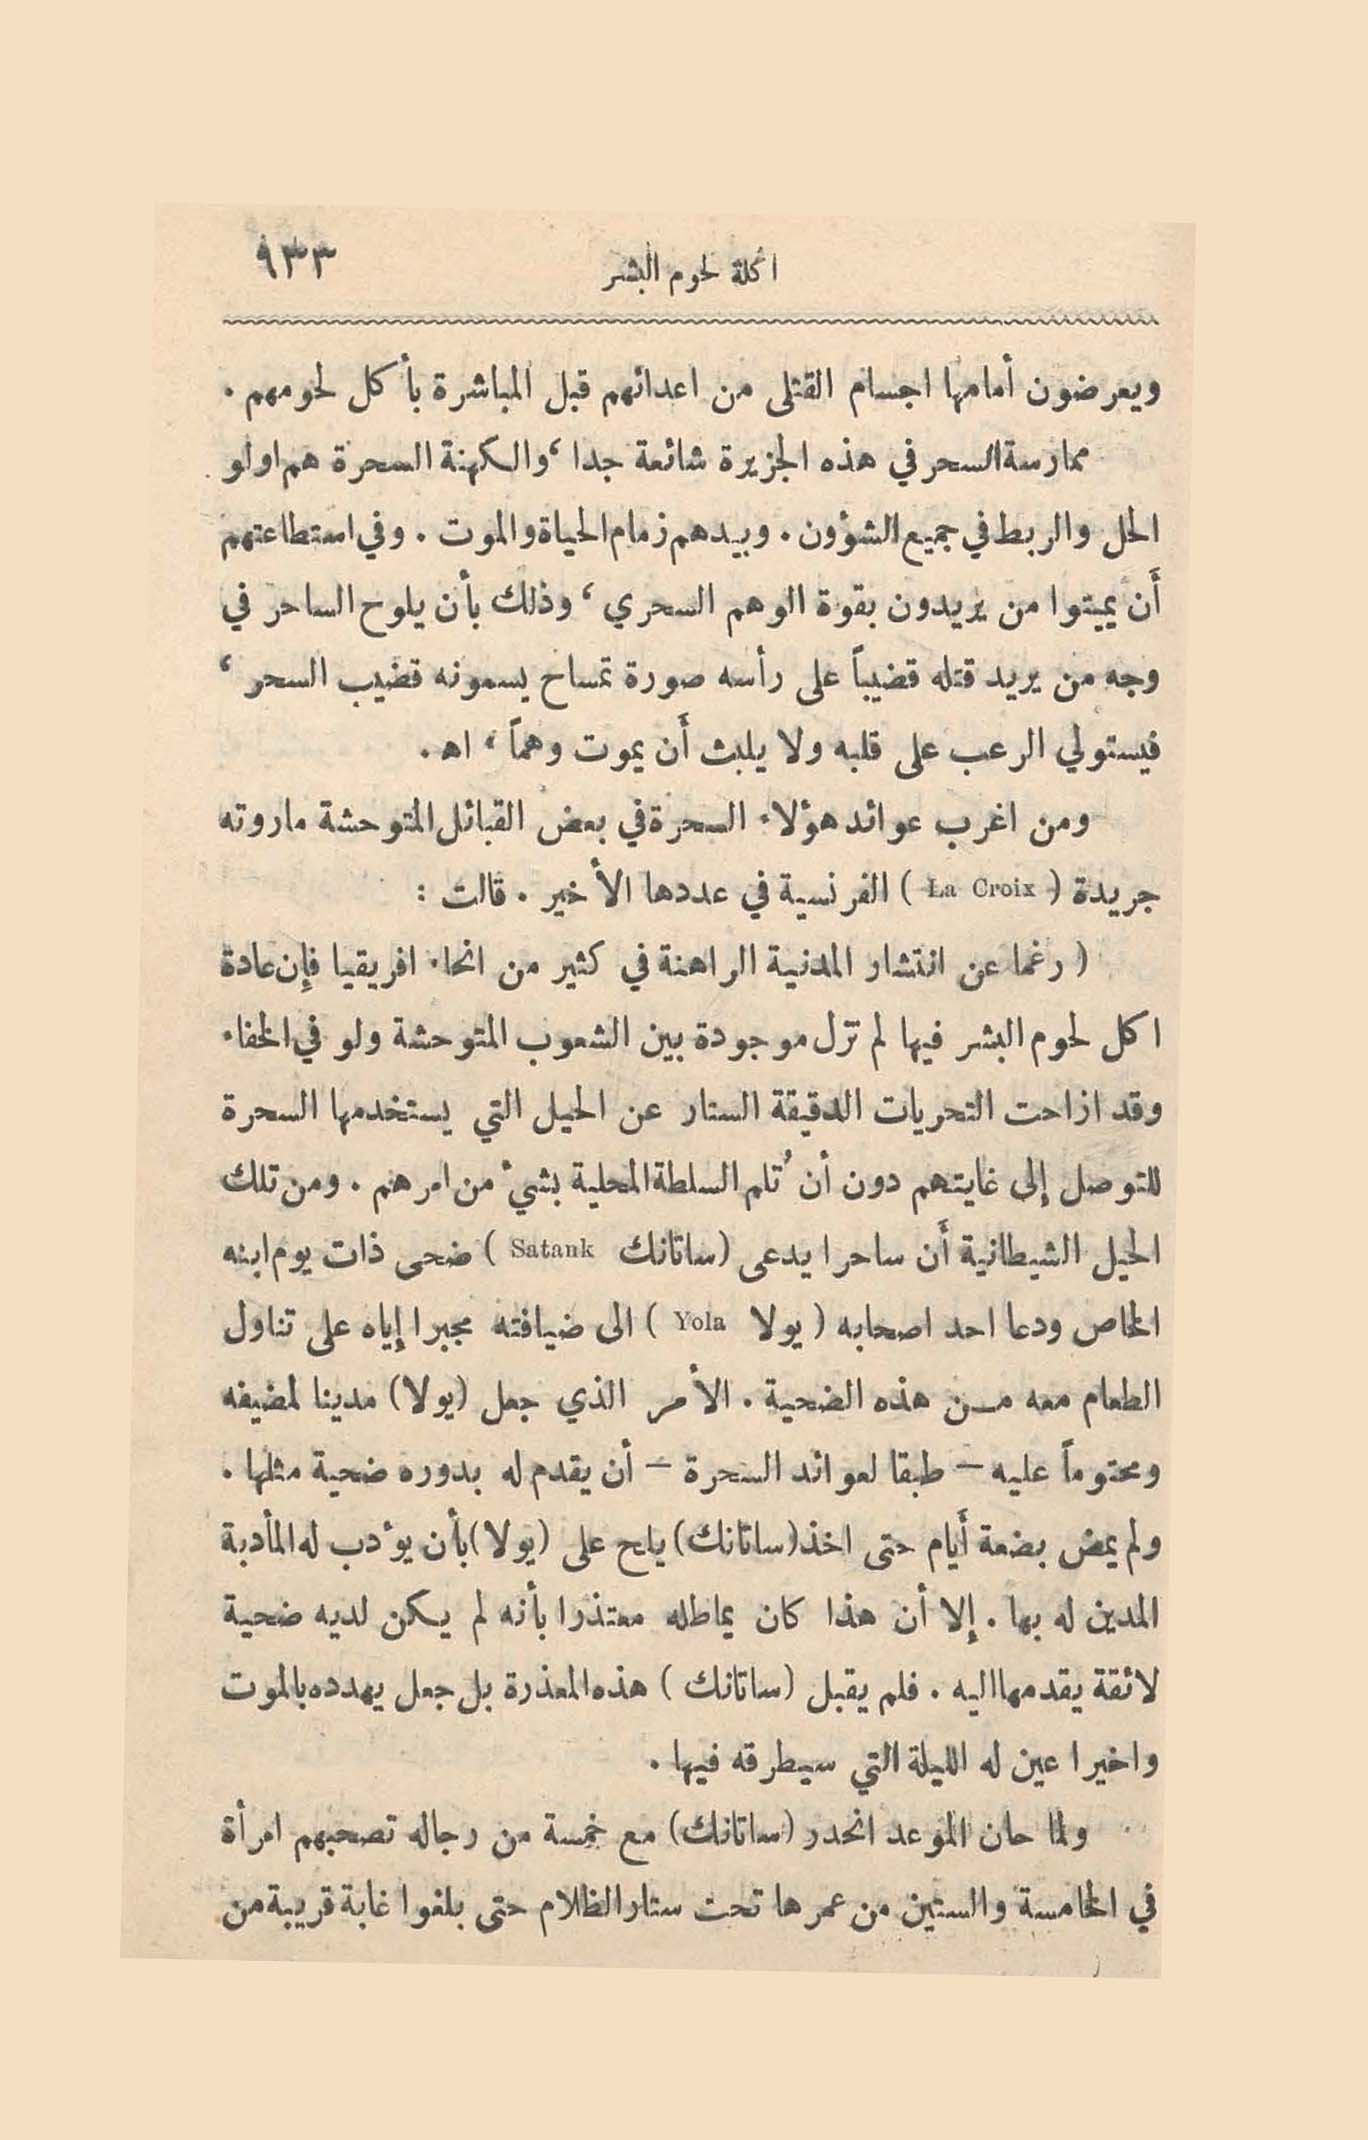 اكلة لحوم البشر ٩٣٣
ويعرضون أمامها اجسام القتلى من اعدائهم قبل المباشرة بأكل لحومهم .
ممارسة السحر في هذه الجزيرة شائعة جدا ، والكهنة السحرة هم اولو
الحل والربط في جميع الشؤون . وبيدهم زمام الحياة والموت . وفي استطاعتهم
أن يميتوا من يريدون بقوة الوهم السحري ، وذلك بأن يلوح الساحر في
وجه من يريد قتله قضيباً على رأسه صورة تمساح يسمونه قضيب السحر ،
فيستولي الرعب على قلبه ولا يلبث أن يموت وهماً ، اه .
ومن اغرب عوائد هؤلاء السحرة في بعض القبائل المتوحشة ماروته
جريدة ( La Croix ) الفرنسية في عددها الأخير . قالت :
( رغما عن انتشار المدنية الراهنة في كثير من انحاء افريقيا فإن عادة
اكل لحوم البشر فيها لم تزل موجودة بين الشعوب المتوحشة ولو في الخفاء
وقد ازاحت التحريات الدقيقة الستار عن الحيل التي يستخدمها السحرة
للتوصل إلى غايتهم دون أن تُلم السلطة المحلية بشيء من امرهم . ومن تلك
الحيل الشيطانية أن ساحرا يدعى (ساتانك Satank ) ضحى ذات يوم ابنه
الخاص ودعا احد اصحابه ( يولا Yola ) الى ضيافته مجبرا إياه على تناول
الطعام معه من هذه الضحية . الأمر الذي جعل (يولا) مدينا لمضيفه
ومحتوماً عليه – طبقا لعوائد السحرة – أن يقدم له بدوره ضحية مثلها .
ولم يمض بضعة أيام حتى اخذ (ساتانك) يلح على (يولا) بأن يؤدب له المأدبة
المدين له بها . إلا أن هذا كان يماطله معتذرا بأنه لم يكن لديه ضحية
لائقة يقدمها اليه . فلم يقبل (ساتانك ) هذه المعذرة بل جعل يهدده بالموت
واخيرا عين له الليلة التي سيطرقه فيها .
ولما حان الموعد انحدر (ساتانك) مع خمسة من رجاله تصحبهم امرأة
في الخامسة والستين من عمرها تحت ستار الظلام حتى بلغوا غابة قريبة من